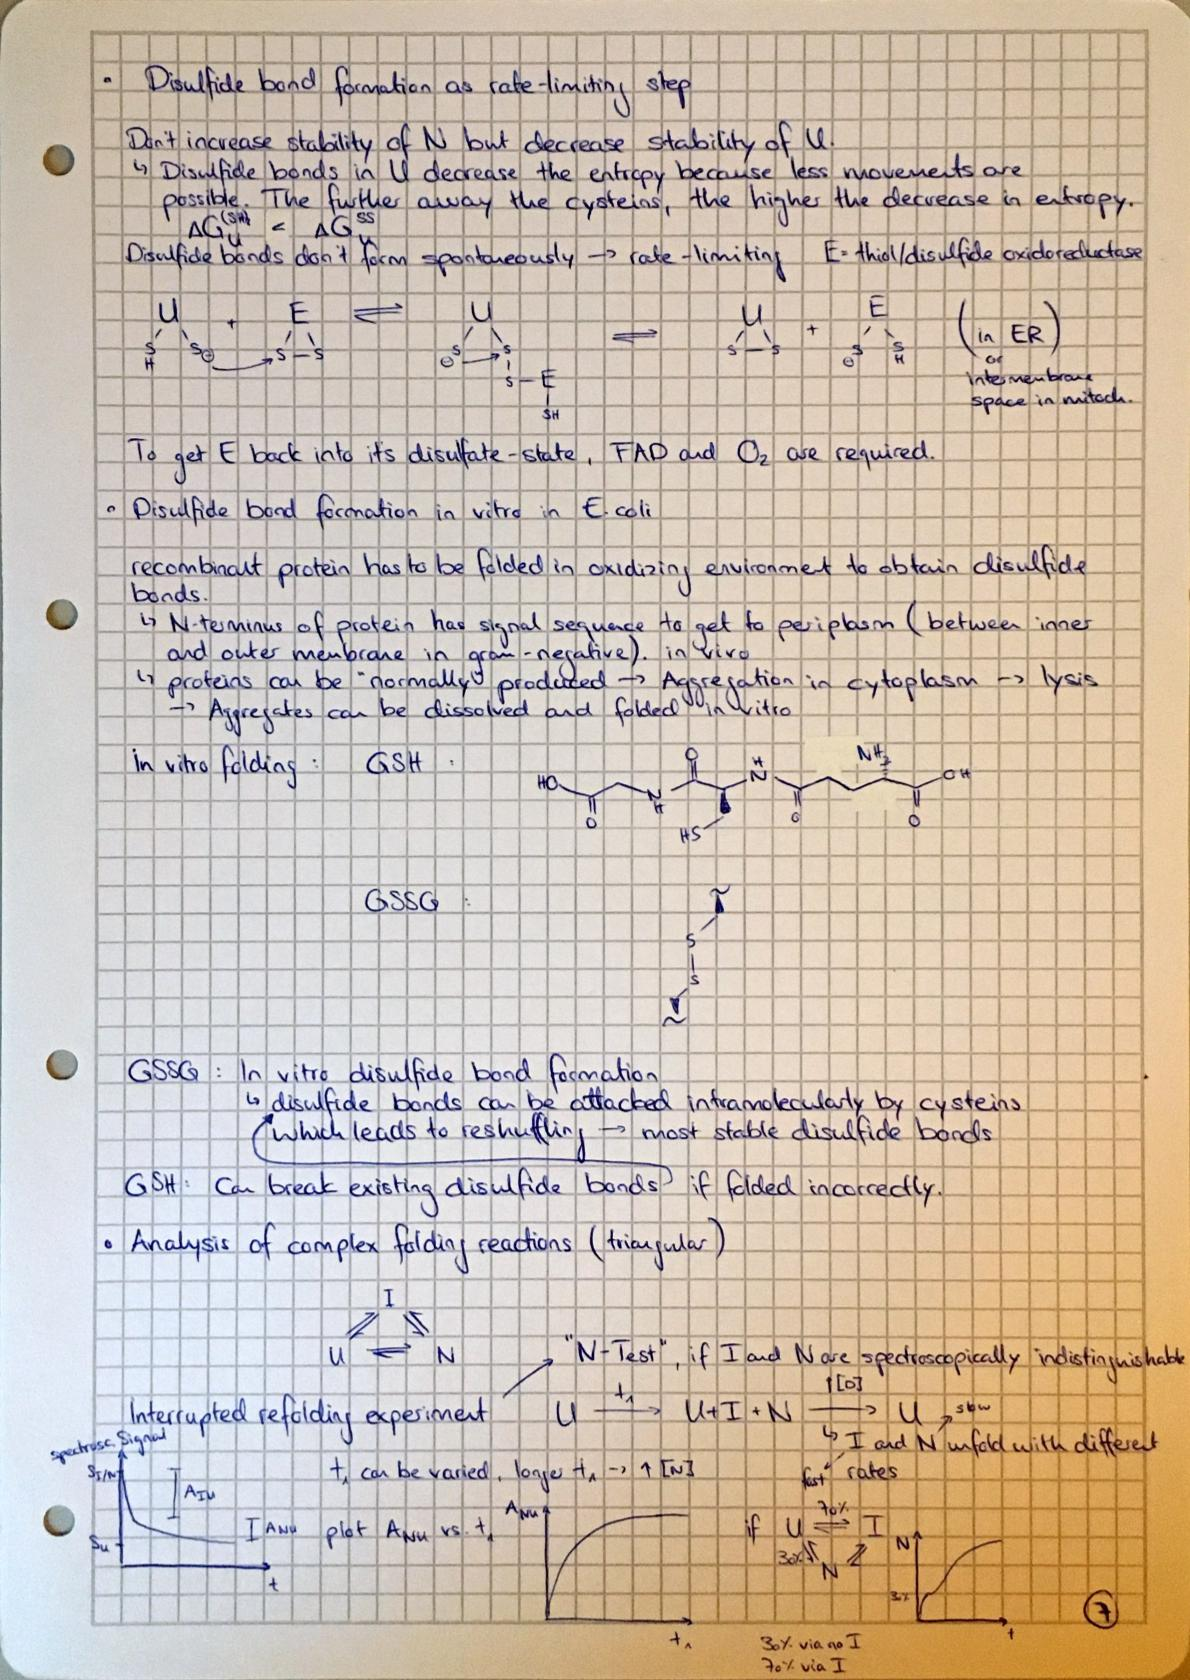 • Disulfide bond formation as rate-limiting step
Don't increase stability of N but decrease stability of U.
↳ Disulfide bonds in U decrease the entropy because less movements are
possible. The further away the cysteins, the higher the decrease in entropy.
ΔG_U^(SH) < ΔG_U^SS
Disulfide bonds don't form spontaneously → rate-limiting E = thiol/disulfide oxidoreductase
U + E ⇌ U ⇌ U + E (in ER)
S H S⊖ S–S ⊖S S S–S ⊖S S H or
S–E intermembrane
SH space in mitoch.
To get E back into its disulfate-state, FAD and O₂ are required.
• Disulfide bond formation in vitro in E. coli
recombinant protein has to be folded in oxidizing environment to obtain disulfide
bonds.
↳ N-terminus of protein has signal sequence to get to periplasm (between inner
and outer membrane in gram-negative). in vivo
↳ proteins can be "normally" produced → Aggregation in cytoplasm → lysis
→ Aggregates can be dissolved and folded in vitro
in vitro folding: GSH:
HO O N H O HS H N O NH₂ O OH
GSSG:
S
S
GSSG: In vitro disulfide bond formation
↳ disulfide bonds can be attacked intramolecularly by cysteins
which leads to reshuffling → most stable disulfide bonds
GSH: Can break existing disulfide bonds if folded incorrectly.
• Analysis of complex folding reactions (triangular)
I
U ⇌ N
"N-Test", if I and N are spectroscopically indistinguishable
Interrupted refolding experiment U →t₁ U+I+N →↑[D] U slow
↳ I and N unfold with different
fast rates
spectrosc. Signal
t₁ can be varied, longer t₁ → ↑[N]
S_I/N A_IU
S_U I A_NU plot A_NU vs. t₁
t
A_NU
t₁
if U ⇌ I 70%
30% N
N
30%
t
30% via no I
70% via I
7